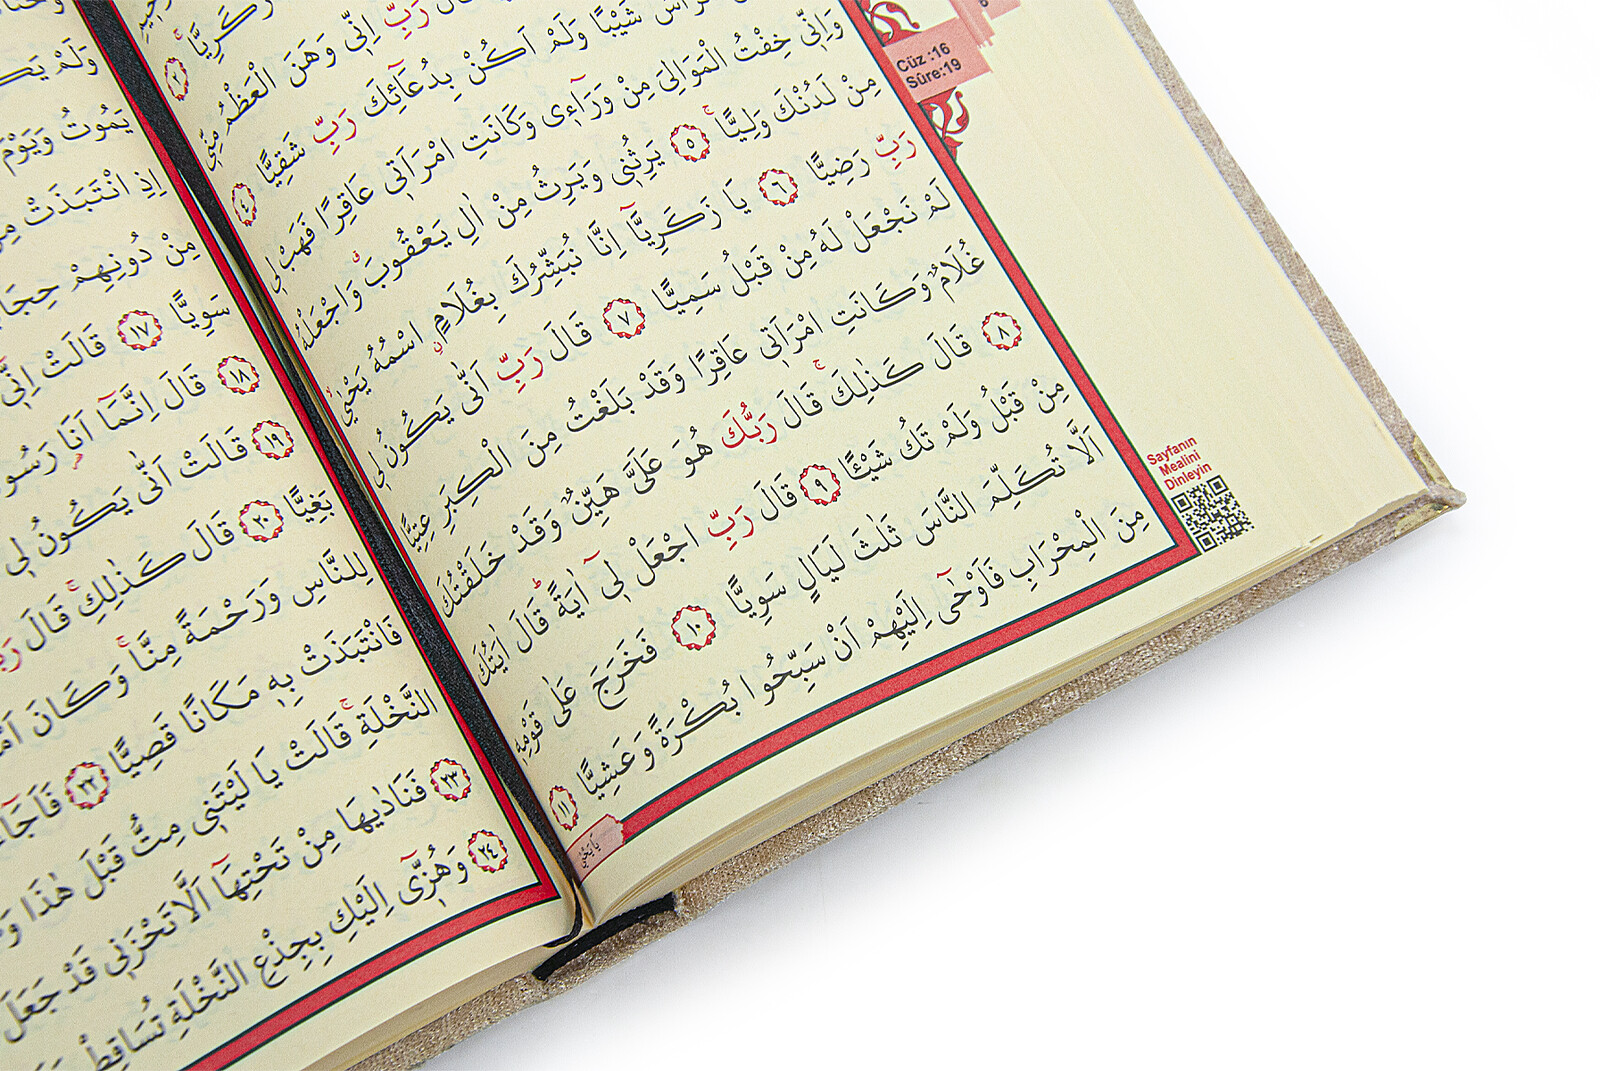 زَكَرِيَّاۚ ٢
قَالَ رَبِّ اِنّ۪ي وَهَنَ الْعَظْمُ مِنّ۪ي
شَيْبًا وَلَمْ اَكُنْ بِدُعَٓائِكَ رَبِّ شَقِيًّا ٤
وَاِنّ۪ي خِفْتُ الْمَوَالِيَ مِنْ وَرَٓاء۪ي وَكَانَتِ امْرَاَت۪ي عَاقِرًا فَهَبْ ل۪ي
مِنْ لَدُنْكَ وَلِيًّاۚ ٥ يَرِثُن۪ي وَيَرِثُ مِنْ اٰلِ يَعْقُوبَۗ وَاجْعَلْهُ
رَبِّ رَضِيًّا ٦ يَا زَكَرِيَّٓا اِنَّا نُبَشِّرُكَ بِغُلَامٍۨ اسْمُهُ يَحْيٰىۙ
لَمْ نَجْعَلْ لَهُ مِنْ قَبْلُ سَمِيًّا ٧ قَالَ رَبِّ اَنّٰى يَكُونُ ل۪ي
غُلَامٌ وَكَانَتِ امْرَاَت۪ي عَاقِرًا وَقَدْ بَلَغْتُ مِنَ الْكِبَرِ عِتِيًّا
٨ قَالَ كَذٰلِكَۚ قَالَ رَبُّكَ هُوَ عَلَيَّ هَيِّنٌ وَقَدْ خَلَقْتُكَ
مِنْ قَبْلُ وَلَمْ تَكُ شَيْـًٔا ٩ قَالَ رَبِّ اجْعَلْ ل۪ٓي اٰيَةًۜ قَالَ اٰيَتُكَ
اَلَّا تُكَلِّمَ النَّاسَ ثَلٰثَ لَيَالٍ سَوِيًّا ١٠ فَخَرَجَ عَلٰى قَوْمِه۪
مِنَ الْمِحْرَابِ فَاَوْحٰٓى اِلَيْهِمْ اَنْ سَبِّحُوا بُكْرَةً وَعَشِيًّا ١١
يَا يَحْيٰى
Cüz :16
Sûre:19
Sayfanın
Mealini
Dinleyin
وَلَمْ
يَمُوتُ وَيَوْمَ
اِذِ انْتَبَذَتْ
مِنْ دُونِهِمْ
سَوِيًّا ١٧ قَالَتْ اِنّ۪ٓي
١٨ قَالَ اِنَّمَٓا اَنَا۬
١٩ قَالَتْ اَنّٰى يَكُونُ ل۪ي
بَغِيًّا ٢٠ قَالَ كَذٰلِكِۚ قَالَ
لِلنَّاسِ وَرَحْمَةً مِنَّاۚ وَكَانَ
فَانْتَبَذَتْ بِه۪ مَكَانًا قَصِيًّا ٢٢
النَّخْلَةِۚ قَالَتْ يَا لَيْتَن۪ي مِتُّ قَبْلَ هٰذَا
٢٣ فَنَادٰيهَا مِنْ تَحْتِهَٓا اَلَّا تَحْزَن۪ي قَدْ جَعَلَ
٢٤ وَهُزّ۪ٓي اِلَيْكِ بِجِذْعِ النَّخْلَةِ تُسَاقِطْ